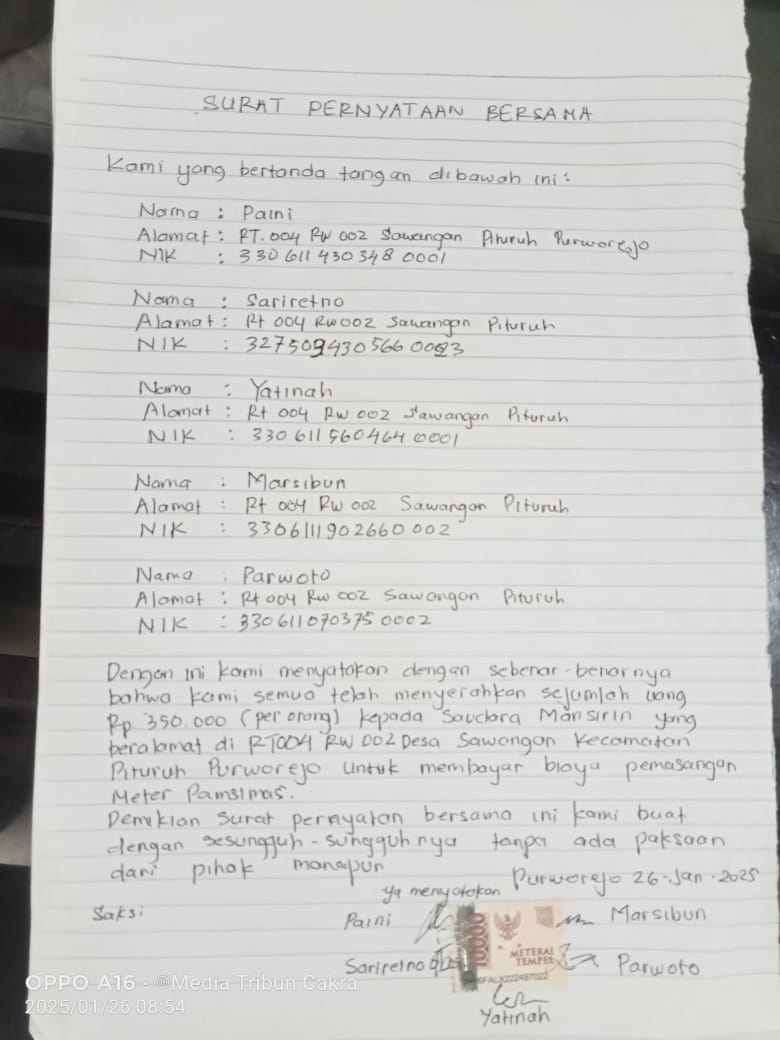 SURAT PERNYATAAN BERSAMA
Kami yang bertanda tangan dibawah ini:
Nama : Paini
Alamat : RT. 004 RW 002 Sawangan Pituruh Purworejo
NIK : 330 611 430 348 0001
Nama : Sariretno
Alamat : Rt 004 RW 002 Sawangan Pituruh
NIK : 327509430566 0023
Nama : Yatinah
Alamat : Rt 004 RW 002 Sawangan Pituruh
NIK : 330 611 560464 0001
Nama : Marsibun
Alamat : Rt 004 RW 002 Sawangan Pituruh
NIK : 3306111902660 002
Nama : Parwoto
Alamat : Rt 004 RW 002 Sawangan Pituruh
NIK : 330611070375 0002
Dengan ini kami menyatakan dengan sebenar-benarnya
bahwa kami semua telah menyerahkan sejumlah uang
Rp 350.000 (per orang) kepada Saudara Mansirin yang
beralamat di RT004 RW 002 Desa Sawangan Kecamatan
Pituruh Purworejo untuk membayar biaya pemasangan
Meter Pamsimas.
Demikian surat pernyatan bersama ini kami buat
dengan sesungguh-sungguhnya tanpa ada paksaan
dari pihak manapun
Purworejo 26-Jan-2025
yg menyatakan
Saksi
Paini
Marsibun
Sariretno
Parwoto
10000
METERAI
TEMPEL
FALX222497022
Yatinah
OPPO A16 · ©Media Tribun Cakra
2025/01/26 08:54